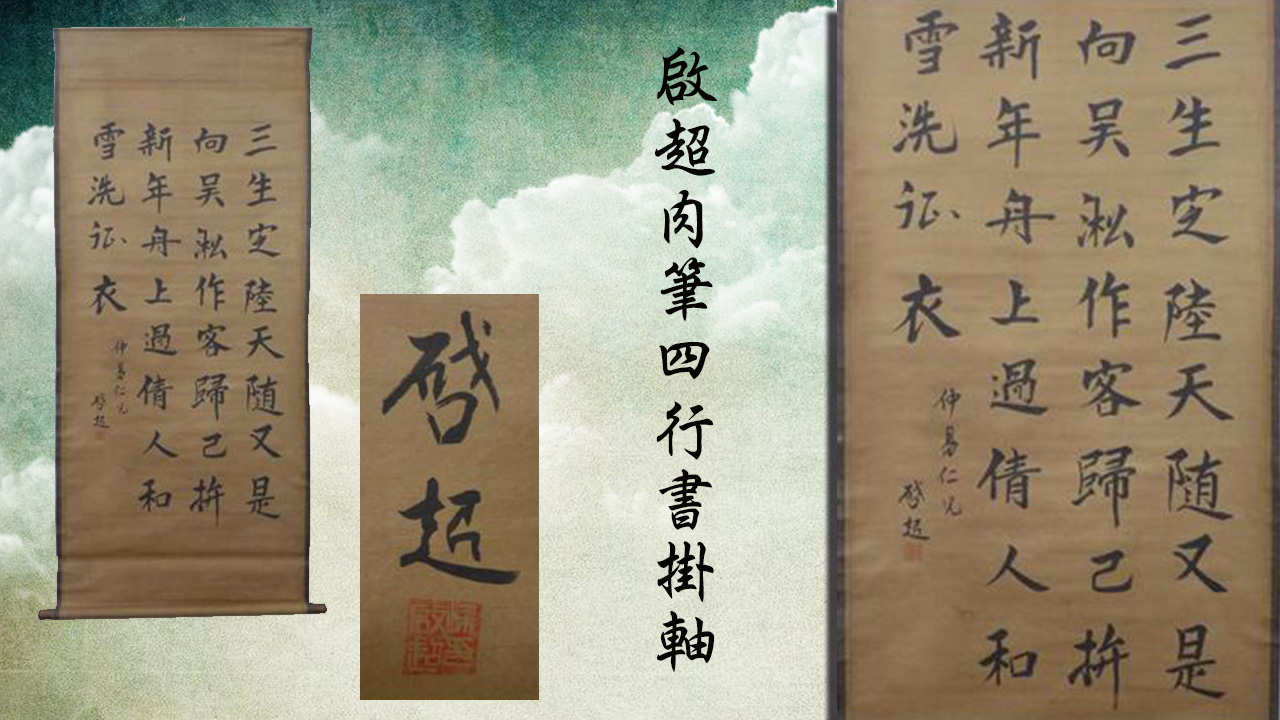 三生㝎陸天随又是
向吴淞作客歸己拚
新年舟上過倩人和
雪洗征衣
仁兄
啓超
啓超
啟超肉筆四行書掛軸
三生㝎陸天随又是
向吴淞作客歸己拚
新年舟上過倩人和
雪洗征衣
仁兄
啓超